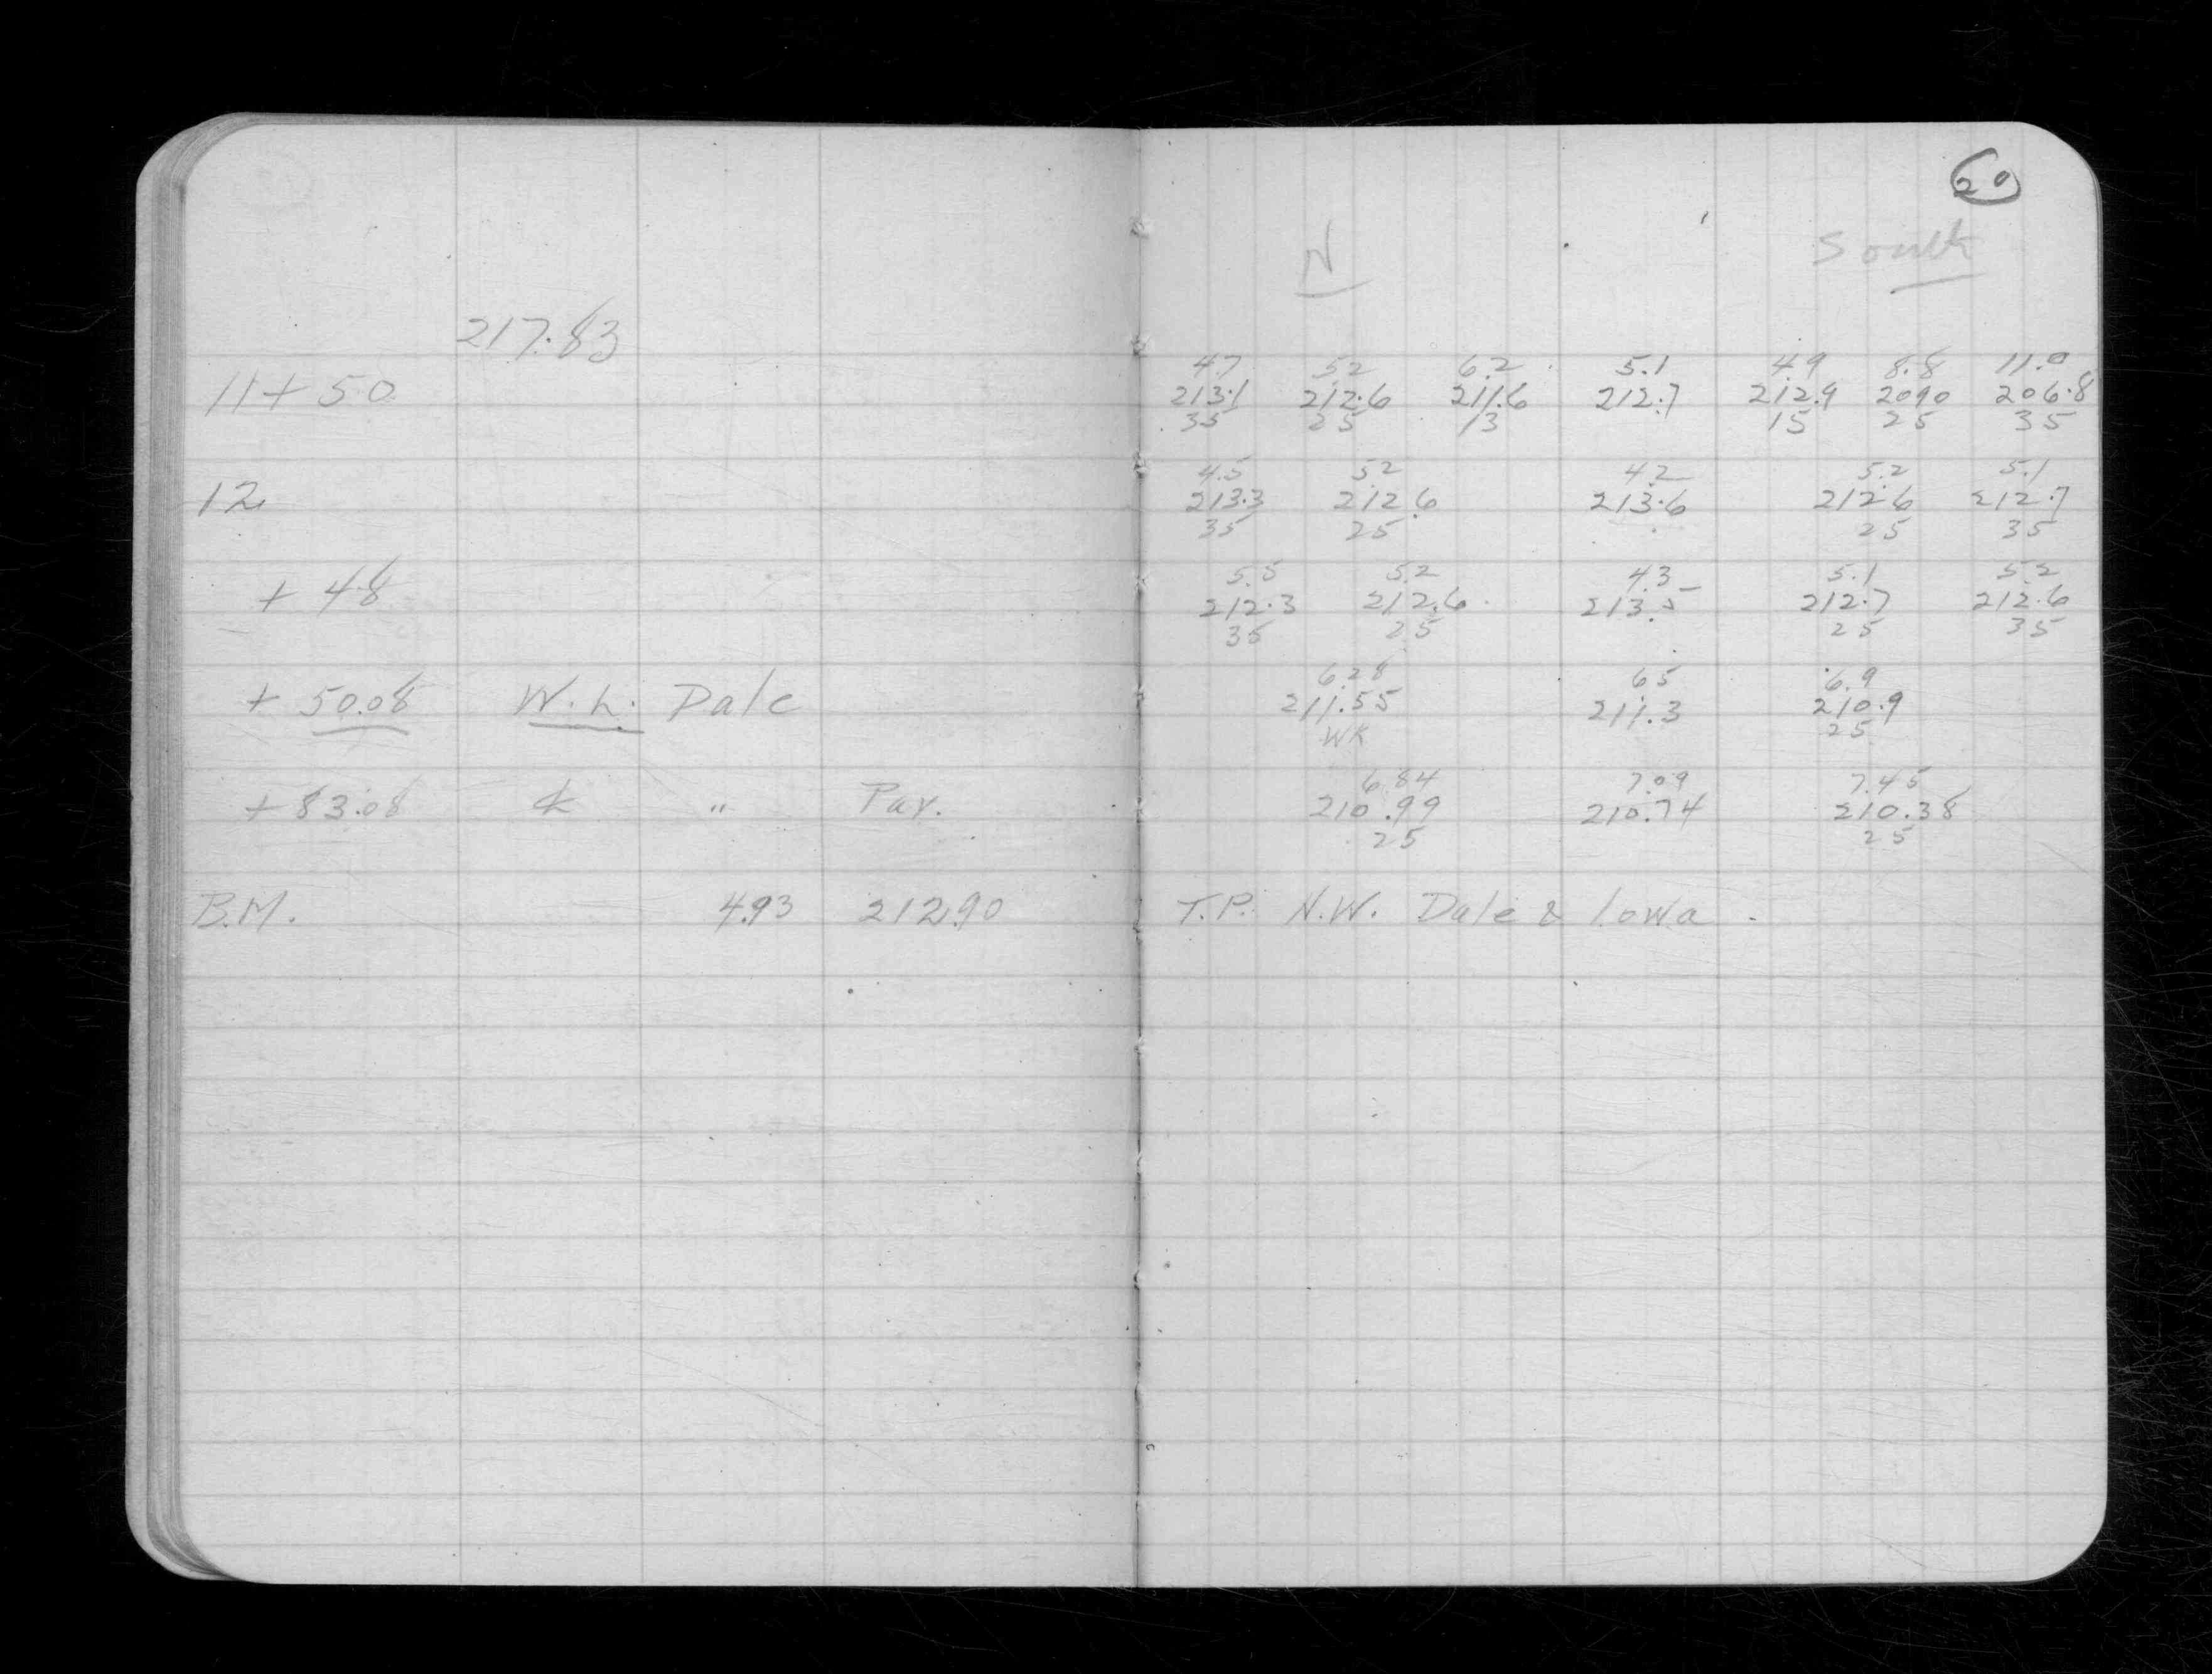 20
N South
217.83
4.7 5.2 6.2 5.1 4.9 8.8 11.0
11+50 213.1 212.6 211.6 212.7 212.9 2090 206.8
35 25 13 15 25 35
4.5 5.2 4.2 5.2 5.1
12 213.3 212.6 213.6 212.6 212.7
35 25 25 35
5.5 5.2 4.3 5.1 5.2
+48 212.3 212.6 213.5 212.7 212.6
35 25 25 35
6.28 65 6.9
+50.08 W.L. Dale 211.55 211.3 210.9
WK 25
6.84 7.09 7.45
+83.08 " Pav. 210.99 210.74 210.38
25 25
B.M. 4.93 212.90 T.P. N.W. Dale & Iowa.